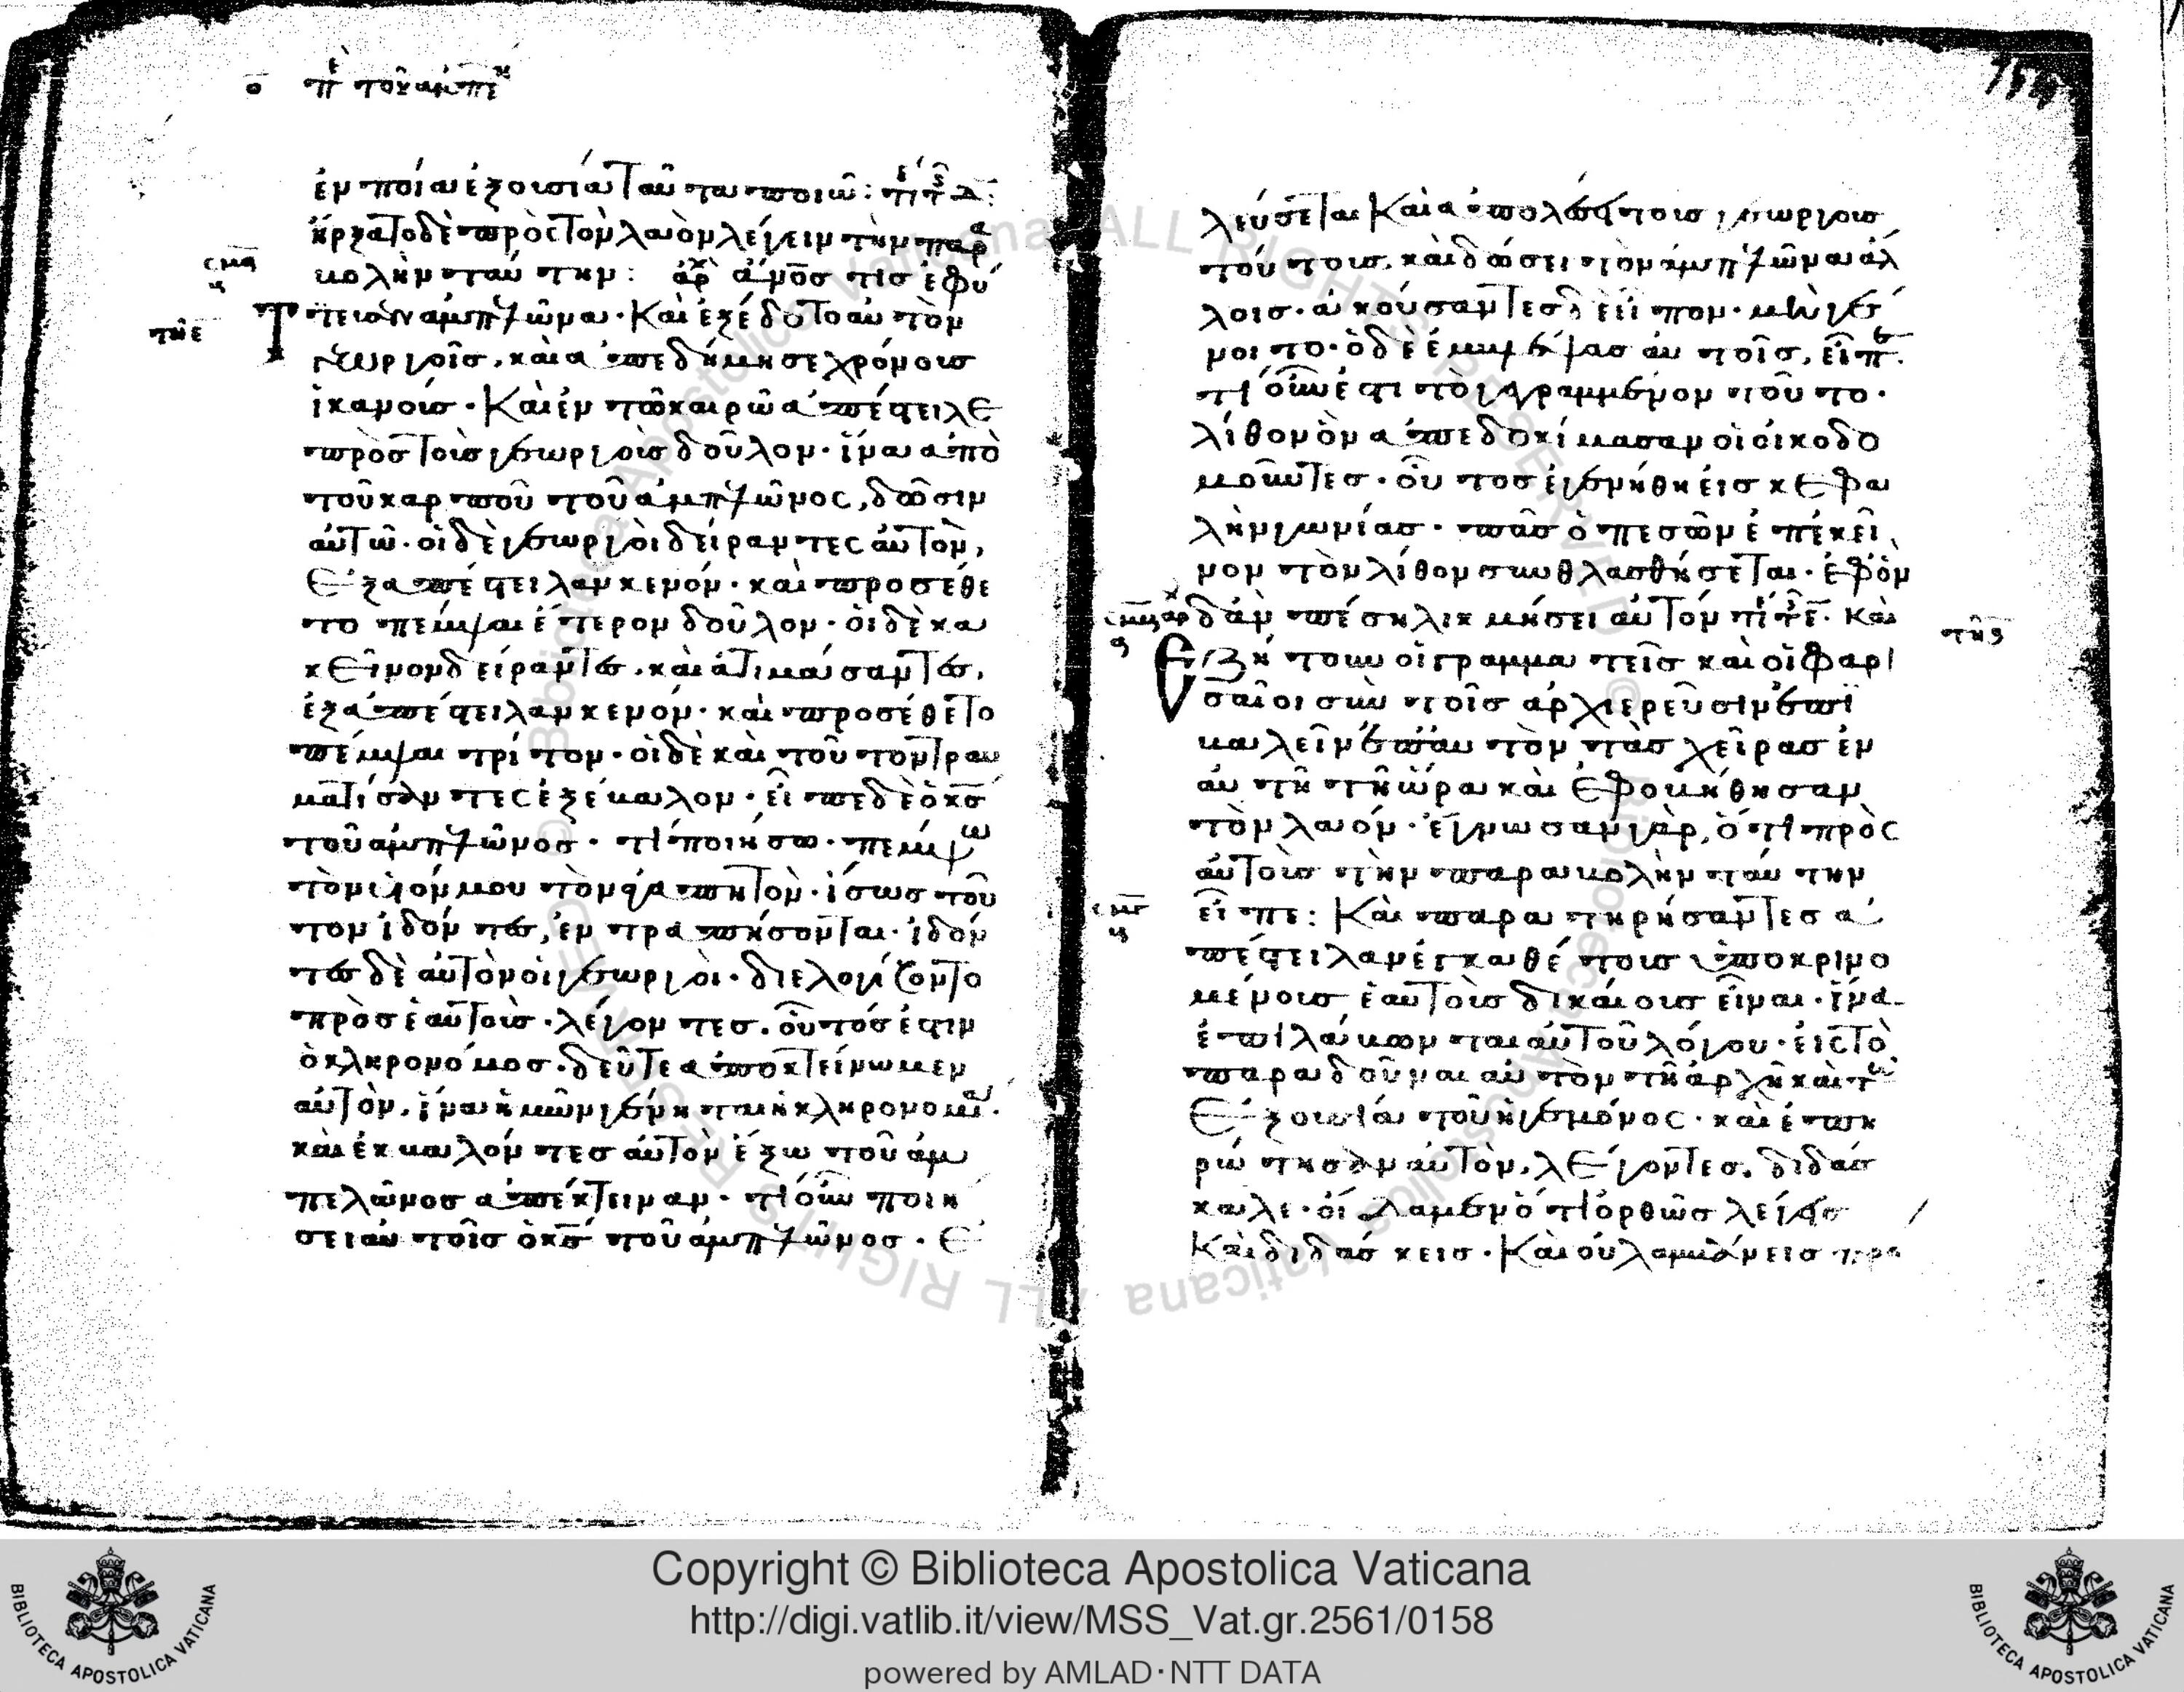 ο πε του αμπε
ἐν ποία ἐξουσία ταῦτα ποιῶ :
ἤρξατο δὲ πρὸς τὸν λαὸν λέγειν τὴν παρα
βολὴν ταύτην : ἀρχ ἄνος τις ἐφύ
τευσεν ἀμπελῶνα · Καὶ ἐξέδοτο αὐτὸν
γεωργοῖς, καὶ ἀπεδήμησε χρόνους
ἱκανούς · Καὶ ἐν τῶ καιρῶ ἀπέστειλε
πρὸς τοὺς γεωργοὺς δοῦλον · ἵνα ἀπὸ
τοῦ καρποῦ τοῦ ἀμπελῶνος, δῶσιν
αὐτῶ · οἱ δὲ γεωργοὶ δείραντες αὐτὸν,
ἐξαπέστειλαν κενόν · καὶ προσέθε
το πέμψαι ἕτερον δοῦλον · οἱ δὲ κα
κεῖνον δείραντες, καὶ ἀτιμάσαντες,
ἐξαπέστειλαν κενόν · καὶ προσέθετο
πέμψαι τρίτον · οἱ δὲ καὶ τοῦτον τραυ
ματίσαντες ἐξέβαλον · εἶπε δὲ ὁ κς
τοῦ ἀμπελῶνος · τί ποιήσω · πέμψω
τὸν υἱόν μου τὸν ἀγαπητὸν · ἴσως τοῦ
τον ἰδόντες, ἐντραπήσονται · ἰδόν
τες δὲ αὐτὸν οἱ γεωργοὶ · διελογίζοντο
πρὸς ἑαυτοὺς · λέγοντες · οὗτός ἐστιν
ὁ κληρονόμος · δεῦτε ἀποκτείνωμεν
αὐτὸν, ἵνα ἡμῶν γένηται ἡ κληρονομία ·
καὶ ἐκβαλόντες αὐτὸν ἔξω τοῦ ἀμ
πελῶνος ἀπέκτειναν · τί οὖν ποιή
σει αὐτοῖς ὁ κς τοῦ ἀμπελῶνος · ἐ
λεύσεται Καὶ ἀπολέσει τοὺς γεωργοὺς
τούτους, καὶ δώσει τὸν ἀμπελῶνα ἄλ
λοις · ἀκούσαντες δὲ εἶπον · μὴ γέ
νοιτο · ὁ δὲ ἐμβλέψας αὐτοῖς, εἶπεν ·
τί οὖν ἐστι τὸ γεγραμμένον τοῦτο ·
λίθον ὃν ἀπεδοκίμασαν οἱ οἰκοδο
μοῦντες · οὗτος ἐγενήθη εἰς κεφα
λὴν γωνίας · πᾶς ὁ πεσὼν ἐπ' ἐκεῖ
νον τὸν λίθον συνθλασθήσεται · ἐφ' ὃν
δ' ἂν πέση λικμήσει αὐτόν Καὶ
ἐζήτουν οἱ γραμματεῖς καὶ οἱ φαρι
σαῖοι σὺν τοῖς ἀρχιερεῦσιν ἐπι
βαλεῖν ἐπ' αὐτὸν τὰς χεῖρας ἐν
αὐτῆ τῆ ὥρα καὶ ἐφοβήθησαν
τὸν λαόν · ἔγνωσαν γὰρ, ὅτι πρὸς
αὐτοὺς τὴν παραβολὴν ταύτην
εἶπε : Καὶ παρατηρήσαντες ἀ
πέστειλαν ἐγκαθέτους ὑποκρινο
μένους ἑαυτοὺς δικαίους εἶναι · ἵνα
ἐπιλάβωνται αὐτοῦ λόγου · εἰς τὸ
παραδοῦναι αὐτὸν τῆ ἀρχῆ καὶ τῆ
ἐξουσία τοῦ ἡγεμόνος · καὶ ἐπη
ρώτησαν αὐτὸν, λέγοντες, διδάσ
καλε · οἴδαμεν ὅτι ὀρθῶς λέγεις
Καὶ διδάσκεις · Καὶ οὐ λαμβάνεις προ
Copyright © Biblioteca Apostolica Vaticana
http://digi.vatlib.it/view/MSS_Vat.gr.2561/0158
powered by AMLAD·NTT DATA
BIBLIOTECA APOSTOLICA VATICANA
BIBLIOTECA APOSTOLICA VATICANA